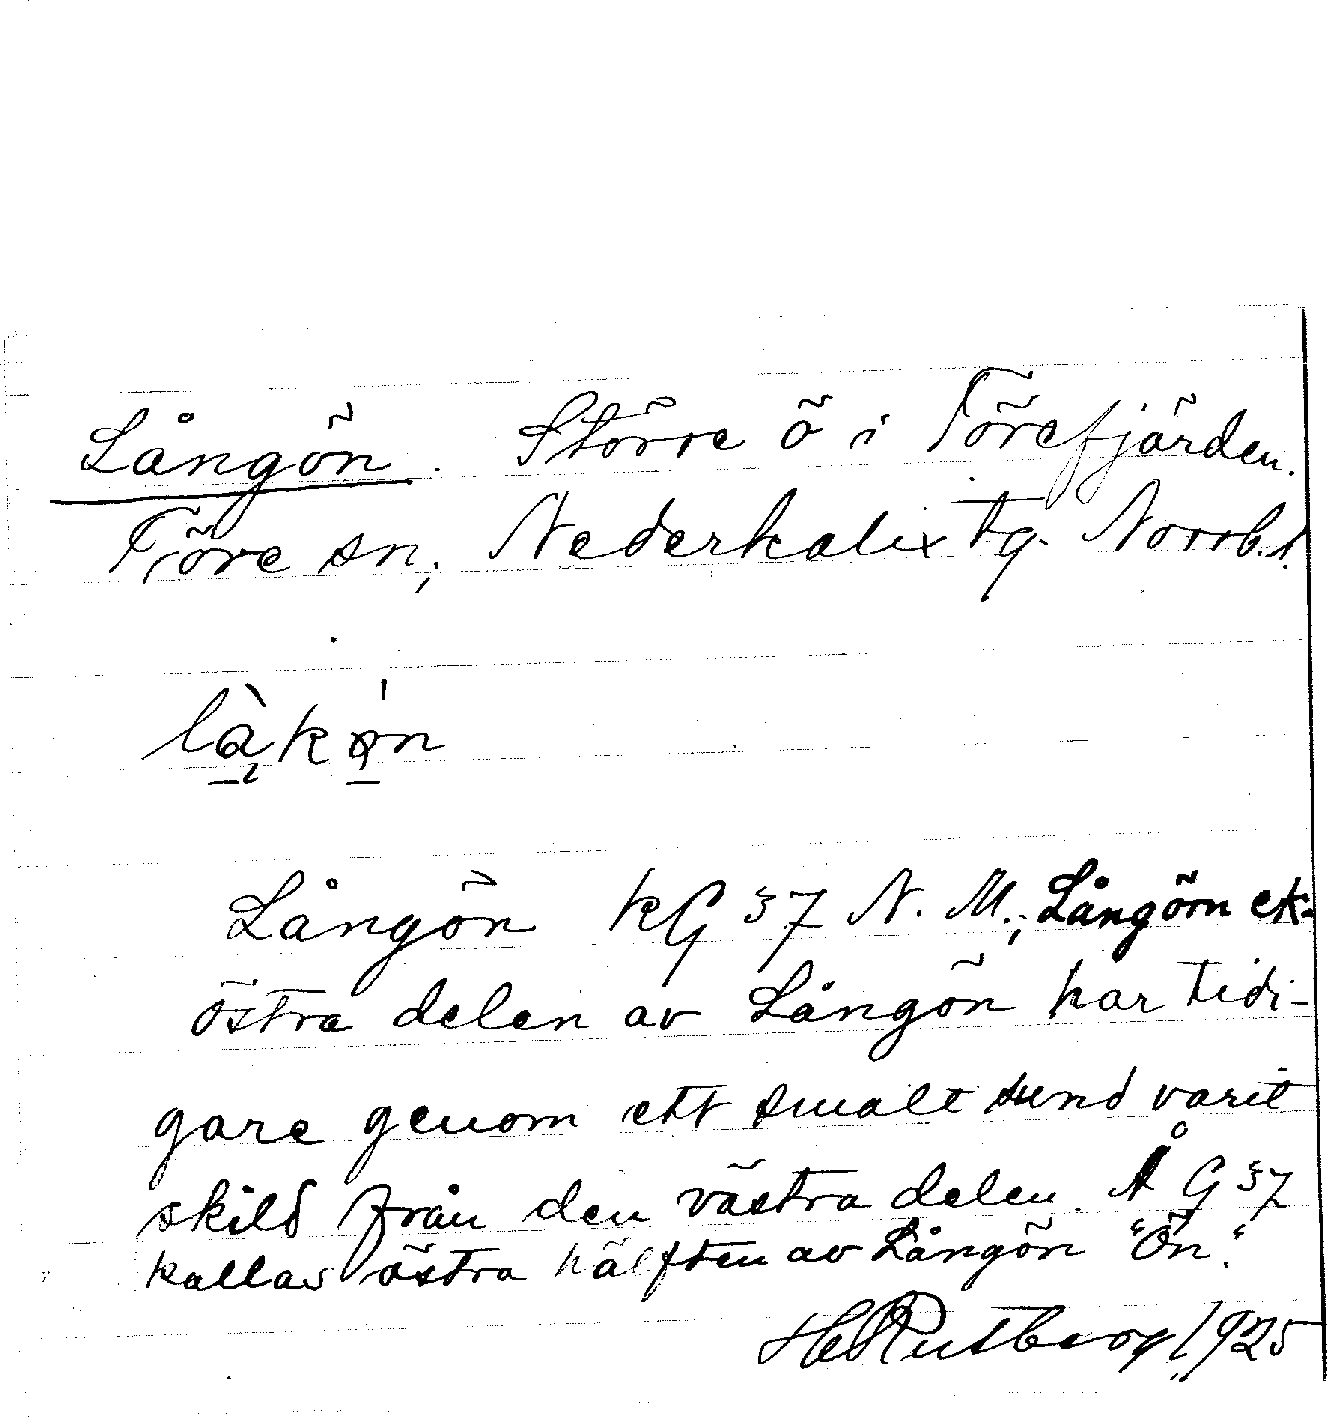 Långön. Större ö i Törefjärden.
Töre sn, Nederkalix tg. Norrb.l.
Långön KG 37 N. M.; Långörn ek.
östra delen av Långön har tidi-
gare genom ett smalt sund varit
skild från den västra delen. Å G 37
kallas östra hälften av Långön "Ön".
H Rutberg 1925